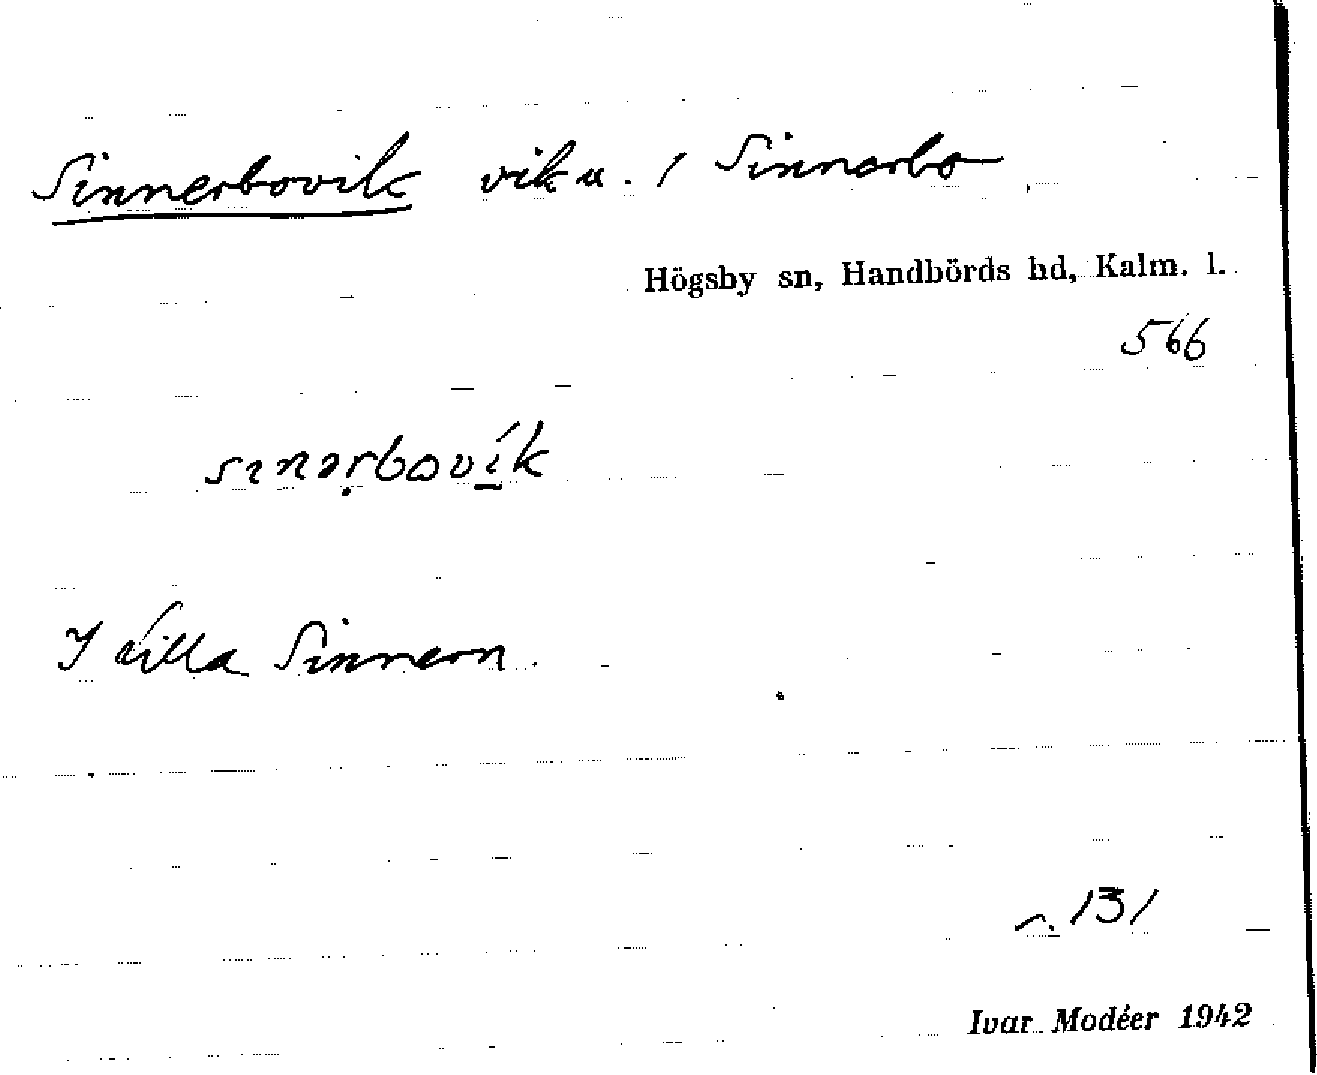 Sinnerbovik vik u. / Sinnerbo
Högsby sn, Handbörds hd, Kalm. l.
566
sınərbovík
I lilla Sinnern.
n. 131
Ivar Modéer 1942